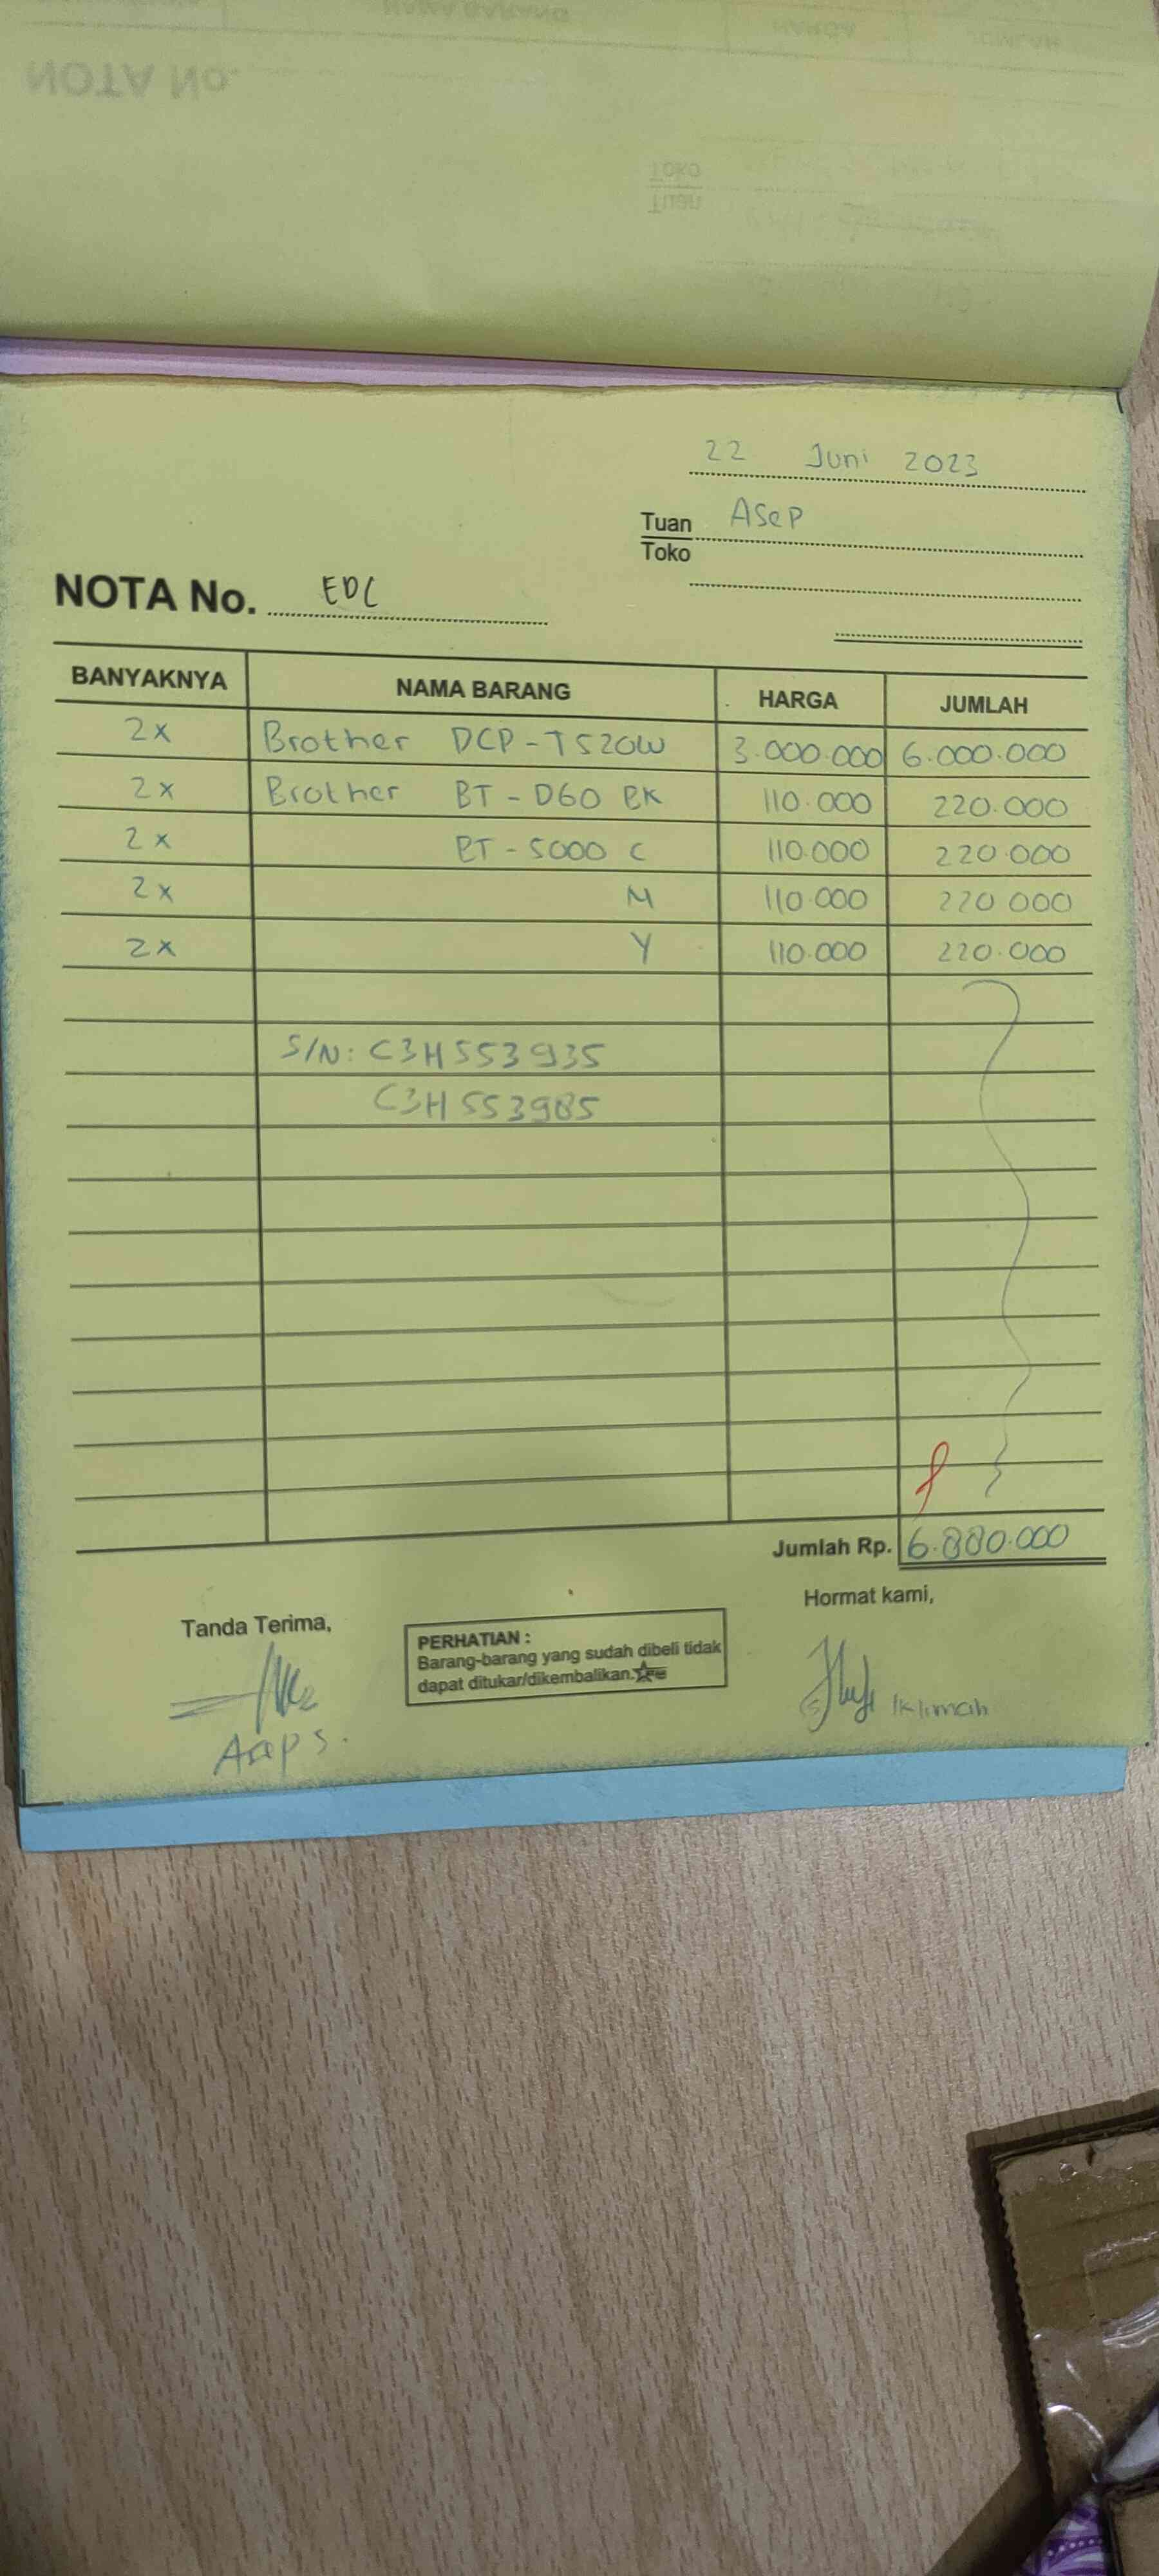 22 Juni 2023
Tuan Asep
Toko
NOTA No. EDC
BANYAKNYA NAMA BARANG HARGA JUMLAH
2x Brother DCP-T520W 3.000.000 6.000.000
2x Brother BT-D60 BK 110.000 220.000
2x BT-5000 C 110.000 220.000
2x M 110.000 220 000
2x Y 110.000 220.000
S/N: C3H553935
C3H553985
Jumlah Rp. 6.880.000
Tanda Terima,
Hormat kami,
PERHATIAN :
Barang-barang yang sudah dibeli tidak
dapat ditukar/dikembalikan.
Asep S.
Iklimah